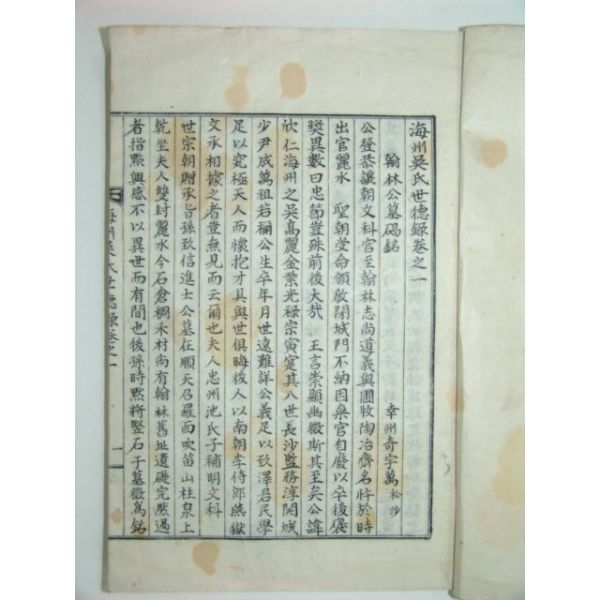 海州吳氏世德錄卷之一
翰林公墓碣銘
幸州奇宇萬 松沙
公登恭讓朝文科官至翰林志尚道義與圃牧陶冶齊名忤於時
出官麗水 聖朝受命領敵閉城門不納因棄官自廢以卒後褒
獎異數曰忠節豈殊前後大哉 王言崇顯幽微斯其至矣公諱
欣仁海州之吳高麗金紫光祿宗寅寔其八世長沙監務淳開城
少尹成萬祖若禰公生卒年月世遠難詳公義足以致澤君民學
足以究極天人而懷抱才具與世俱晦後人以南朝李侍郎燕獄
文承相據之者豈無見而云爾也夫人忠州池氏子補明文科
世宗朝贈承旨孫致信進士公墓在順天乃羅面吹笛山柱泉上
乾坐夫人雙封麗水今石倉桐禾村尚有翰林舊址遺礎宛然過
者指點興感不以異世而有間也後孫時默將竪石于墓徵萬銘
海州吳氏世德錄卷之一
一